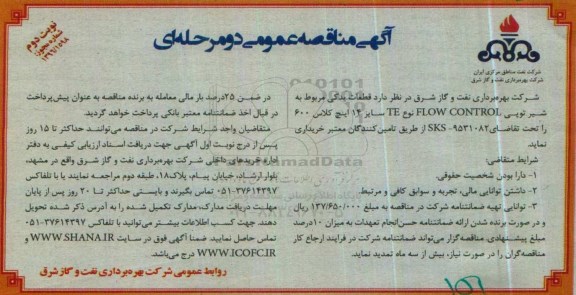 آگهی مناقصه عمومی دو مرحله‌ای
نوبت دوم
شماره مجوز:
۱۳۹۷/۱۰۹۸
شرکت نفت مناطق مرکزی ایران
شرکت بهره‌برداری نفت و گاز شرق
شرکت بهره‌برداری نفت و گاز شرق در نظر دارد قطعات یدکی مربوط به
شیر توپی FLOW CONTROL نوع TE سایز ۱۲ اینچ کلاس ۶۰۰
را تحت تقاضای SKS-۹۵۳۱۰۸۲ از طریق تامین‌کنندگان معتبر خریداری
نماید.
شرایط متقاضی:
۱- دارا بودن شخصیت حقوقی.
۲- داشتن توانایی مالی، تجربه و سوابق کافی و مرتبط.
۳- توانایی تهیه ضمانتنامه شرکت در مناقصه به مبلغ ۱۳۷/۶۵۰/۰۰۰ ریال
و در صورت برنده شدن ارائه ضمانتنامه حسن‌انجام تعهدات به میزان ۱۰درصد
مبلغ پیشنهادی. مناقصه‌گزار می‌تواند ضمانتنامه شرکت در فرایند ارجاع کار
مناقصه‌گران را در صورت نیاز، بیش از سه ماه تمدید نماید.
در ضمن ۲۵درصد بار مالی معامله به برنده مناقصه به عنوان پیش‌پرداخت
در قبال اخذ ضمانتنامه معتبر بانکی پرداخت خواهد گردید.
متقاضیان واجد شرایط شرکت در مناقصه می‌توانند حداکثر تا ۱۵ روز
پس از درج نوبت اول آگهی جهت دریافت اسناد ارزیابی کیفی به دفتر
اداره خریدهای داخلی شرکت بهره‌برداری نفت و گاز شرق واقع در مشهد،
بلوار ارشاد، خیابان پیام، پلاک۱۸، طبقه دوم مراجعه نمایند یا با تلفاکس
۰۵۱-۳۷۶۱۴۳۹۷ تماس بگیرند و بایستی حداکثر تا ۲۰ روز پس از پایان
مهلت دریافت مدارک، مدارک تکمیل شده را به آدرس ذکر شده تحویل
دهند. جهت کسب اطلاعات بیشتر می‌توانید با تلفاکس ۰۵۱-۳۷۶۱۴۳۹۷
تماس حاصل نمایید. ضمنا آگهی فوق در سایت WWW.SHANA.IR و
WWW.ICOFC.IR درج می‌باشد.
روابط عمومی شرکت بهره‌برداری نفت و گاز شرق